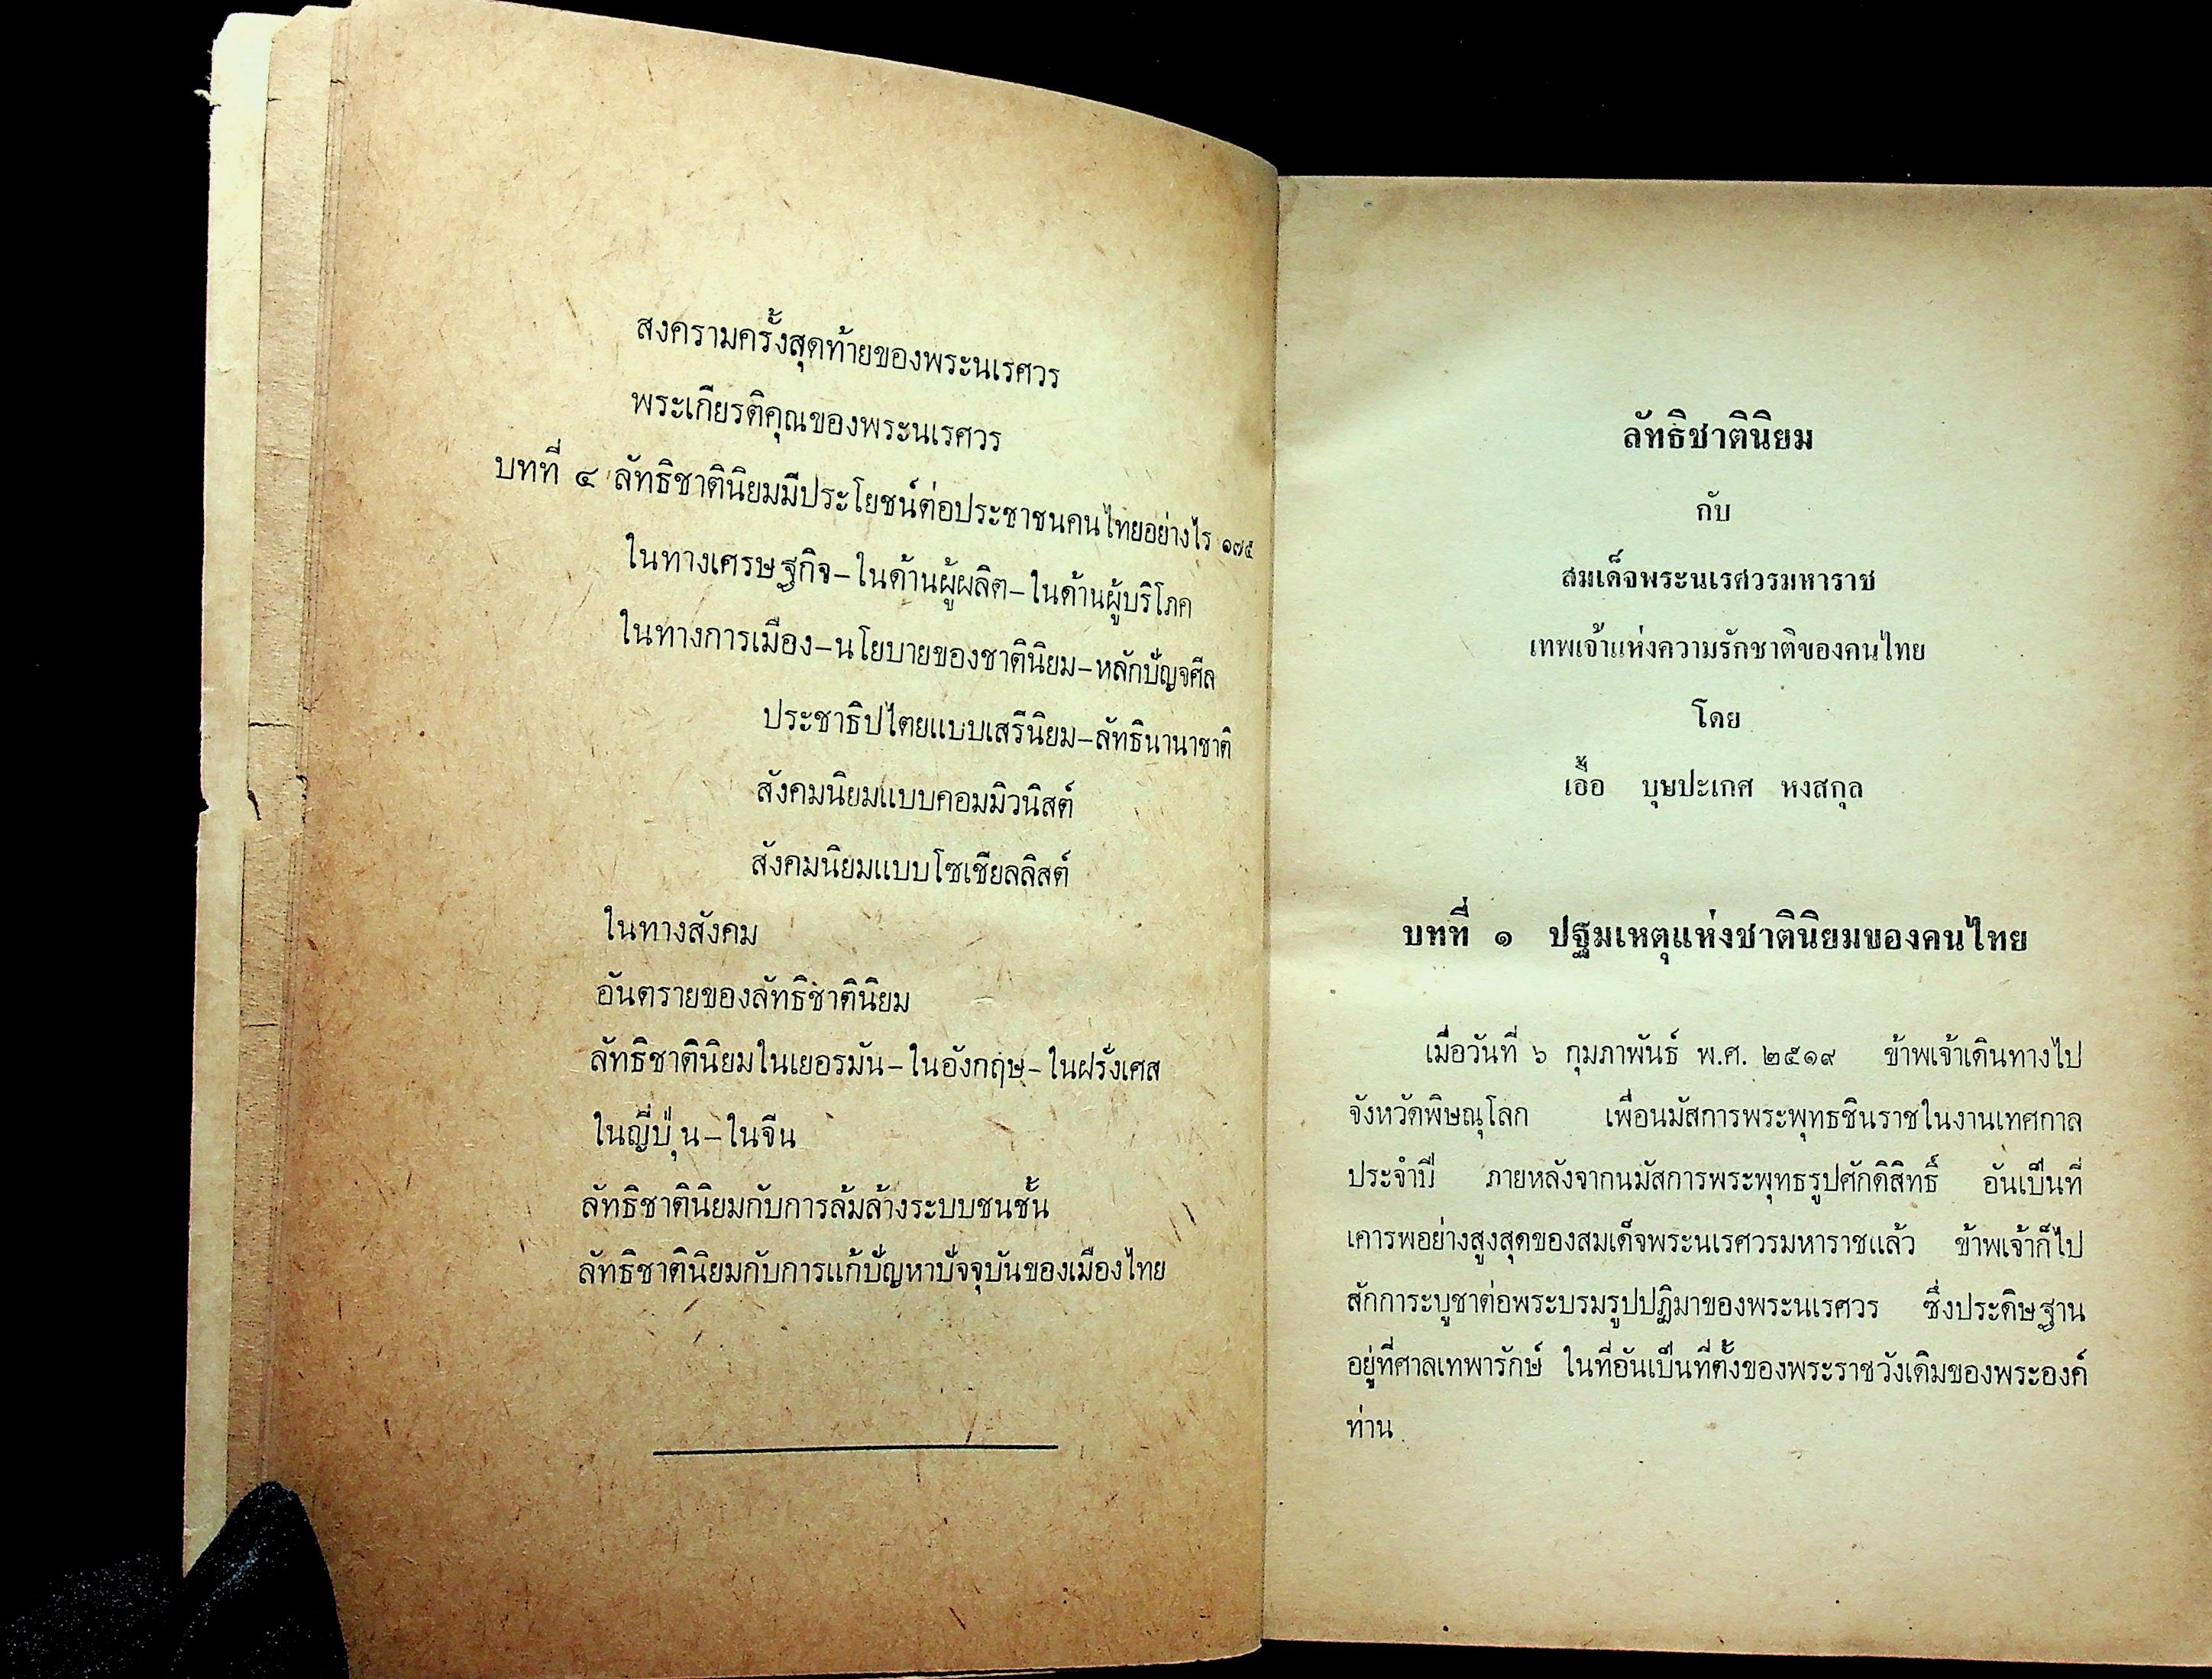 สงครามครั้งสุดท้ายของพระนเรศวร
พระเกียรติคุณของพระนเรศวร
บทที่ ๔ ลัทธิชาตินิยมมีประโยชน์ต่อประชาชนคนไทยอย่างไร ๑๗๕
ในทางเศรษฐกิจ–ในด้านผู้ผลิต–ในด้านผู้บริโภค
ในทางการเมือง–นโยบายของชาตินิยม–หลักปัญจศีล
ประชาธิปไตยแบบเสรีนิยม–ลัทธินานาชาติ
สังคมนิยมแบบคอมมิวนิสต์
สังคมนิยมแบบโซเชียลลิสต์
ในทางสังคม
อันตรายของลัทธิชาตินิยม
ลัทธิชาตินิยมในเยอรมัน–ในอังกฤษ–ในฝรั่งเศส
ในญี่ปุ่น–ในจีน
ลัทธิชาตินิยมกับการล้มล้างระบบชนชั้น
ลัทธิชาตินิยมกับการแก้ปัญหาปัจจุบันของเมืองไทย
ลัทธิชาตินิยม
กับ
สมเด็จพระนเรศวรมหาราช
เทพเจ้าแห่งความรักชาติของคนไทย
โดย
เอื้อ บุษปะเกศ หงสกุล
บทที่ ๑ ปฐมเหตุแห่งชาตินิยมของคนไทย
เมื่อวันที่ ๖ กุมภาพันธ์ พ.ศ. ๒๕๑๙ ข้าพเจ้าเดินทางไป
จังหวัดพิษณุโลก เพื่อนมัสการพระพุทธชินราชในงานเทศกาล
ประจำปี ภายหลังจากนมัสการพระพุทธรูปศักดิสิทธิ์ อันเป็นที่
เคารพอย่างสูงสุดของสมเด็จพระนเรศวรมหาราชแล้ว ข้าพเจ้าก็ไป
สักการะบูชาต่อพระบรมรูปปฏิมาของพระนเรศวร ซึ่งประดิษฐาน
อยู่ที่ศาลเทพารักษ์ ในที่อันเป็นที่ตั้งของพระราชวังเดิมของพระองค์
ท่าน